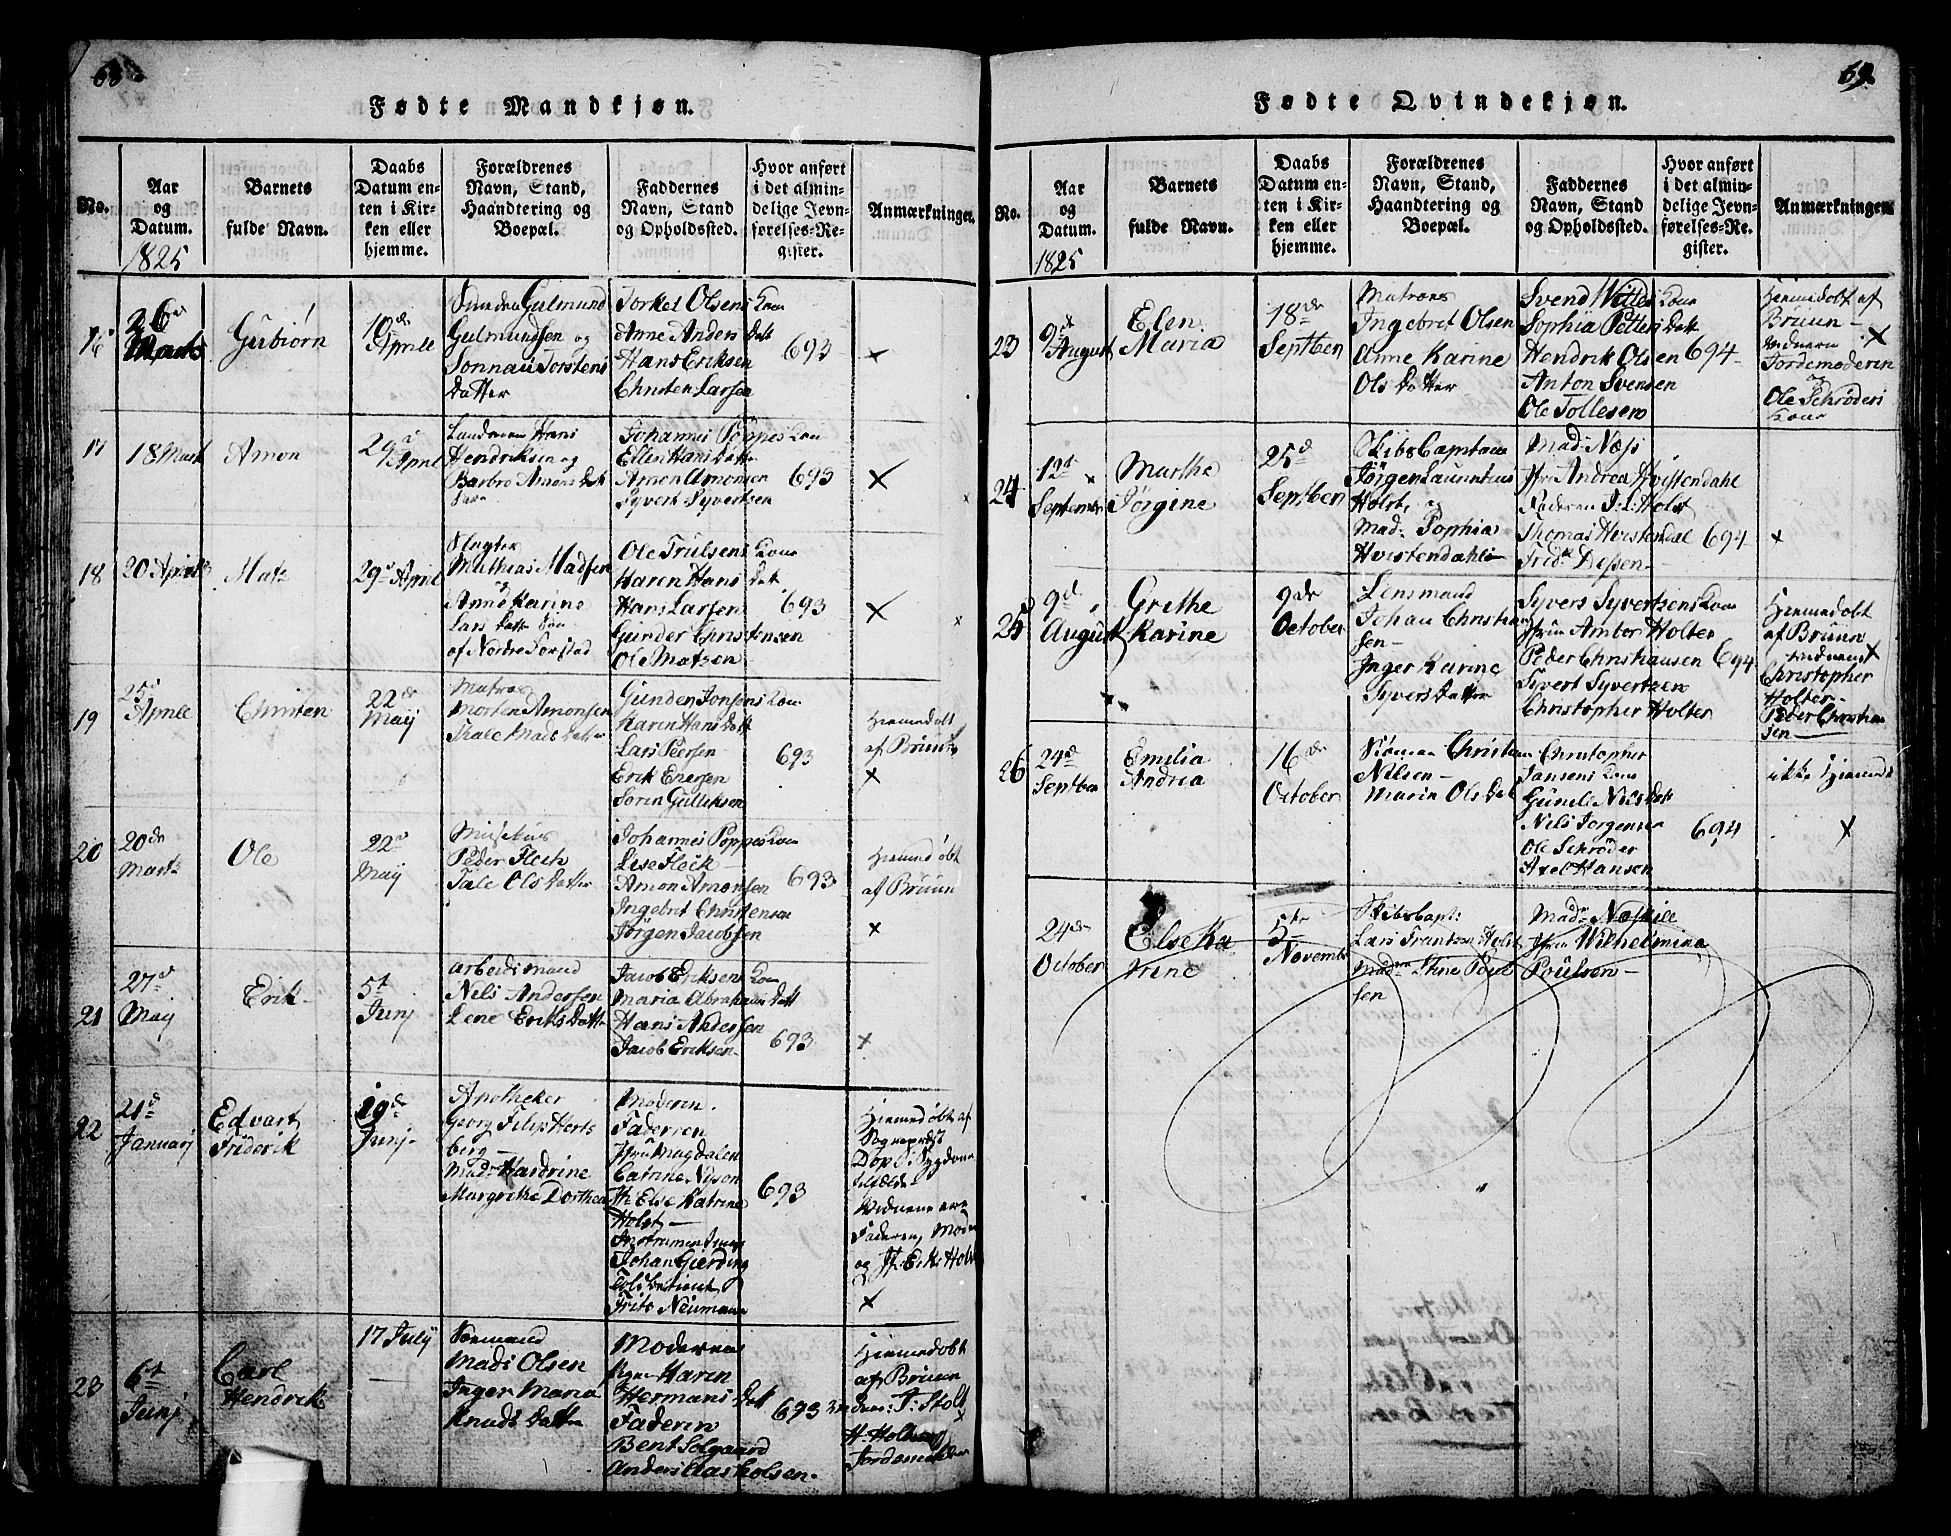 68
Fødte Mandkjøn.
No.
Aar
og
Datum.
1825
Barnets
fulde Navn.
Daabs
Datum en-
ten i Kir-
ken eller
hjemme.
Forældrenes
Navn, Stand,
Haandtering og
Boepæl.
Faddernes
Navn, Stand
og Opholdssted.
Hvor anført
i det almin-
delige Jevn-
førelses-Re-
gister.
Anmærkninger.
26de
Marts
Gubiørn
10de
Aprile
Gulmund
Gulmundsen og
Torstens
Datter
Torkel Olsens Kone
Anne Anders Datt
Hans Eriksen
Christen Larsen
693
×
17
18 Mart
Amon
24
April
Hans
Hendriksen og
Barbro Amons Datt
Johannes Poppes Kone
Ellen Hans Datt
Amon Amonsen
Syvert Syvertsen
693
×
18
20 Aprile
Mats
29 April
Slagter
Mathias Madsen
og
Anne Karine
Lars Datter
Ole Trulsens Kone
Karen Hans Datt
Hans Larsen
Gunder Christensen
Ole Matsen
693
×
19
25
Aprile
Christen
22de
Maij
Matros
Morten Amonsen
Tale Mads Datter
Gunder Jonsens Kone
Karen Hans Datt
Lars Peersen
Erik Enersen
Søren Gulliksen
693
Hiemedøbt
af Bruun
×
20
20de
Marts
Ole
22
Maij
Peder Fleck
Tale Ols Datter
Johannes Poppes Kone
Lise Fleck
Amon Amonsen
Ingebret Christensen
Jørgen Jacobsen
693
Hiemedøbt
af Bruun
×
21
27
Maij
Erik
5t
Junj
Arbeidsmand
Nils Andersen
Lene Eriks Datter
Jacob Eriksens Kone
Maria Abraham Datt
Hans Andersen
Jacob Eriksen
693
×
22
21d
Januarj
Edvart
Friderik
19de
Junj
Apotheker
Georg Filip Herts
berg
Mad: Hardrine
Margrethe Dorthea
Moderen
Faderen
Jfru Magdalen
Catrine
Jfr Else Katrine
Holst
Johan Gierding
Frits Neumann
693
Hiemedøbt af
Sognepræst
Vidnerne ere
Faderen, Mode
og Jfr. Else Holst
×
23
6t
Junj
Carl
Hendrik
17 Julij
Mads Olsen
Inger Maria
Knuds Datter
Moderen
Karen
Hermans Datt
Faderen
Bent Solgaard
Anders Aasholsen
693
Hiemedøbt
af Bruun
J: Stolt
Jordemoder
69
Fødte Qvindekjøn.
No.
Aar
og
Datum.
1825
Barnets
fulde Navn.
Daabs
Datum en-
ten i Kir-
ken eller
hjemme.
Forældrenes
Navn, Stand,
Haandtering og
Boepæl.
Faddernes
Navn, Stand
og Opholdssted.
Hvor anført
i det almin-
delige Jevn-
førelses-Re-
gister.
Anmærkninger.
23
9de
August
Elen
Maria
18de
Septben
Matros
Ingebret Olsen
Anne Karine
Ols Datter
Svend Kone
Sophia Petters Datt
Hendrik Olsen
Anton Svensen
Ole Tollesen
694
Hiemedøbt af
Bruun
Vidnern ×
Jordemoderen
og
Ole Schrøders
Kone
24
12t
Septemer
Marthe
Jørgine
25d
Septben
Skibs Captain
Jørgen
Holst, og
Mad: Sophia
Hvistendahl
Mad: Næss
Jfr: Andrea Hvistendahl
Faderen J: L: Holst
Thomas Hvistendal
Frid: Dessen
694
×
25
9d
August
Grethe
Karine
9de
October
Lensmand
Johan Christian
sen
Inger Karine
Syvers Datter
Syvers Syvertsens Kone
Jfru Holter
Peder Christiansen
Syvert Syvertsen
Christopher Holter
694
Hiemedøbt
af Bruun
×
Christopher
Holter
Peder Christian
sen
26
24d
Septben
Emilia
Andrea
16de
October
Christian
Nilsen
Maria Ols Dat
Christopher
Jansens Kone
Gunil Nils Datt
Nils Jorgensen
Ole Schrøder
Axel Hansen
694
ikke Hiemed
×
24de
October
Else Ka
trine
5te
Novembr
Skibscapt:
Lars Frantsen Holst
Madm Stine Poul
sen
Mad:
Jfru Wilhelmina
Poulsen